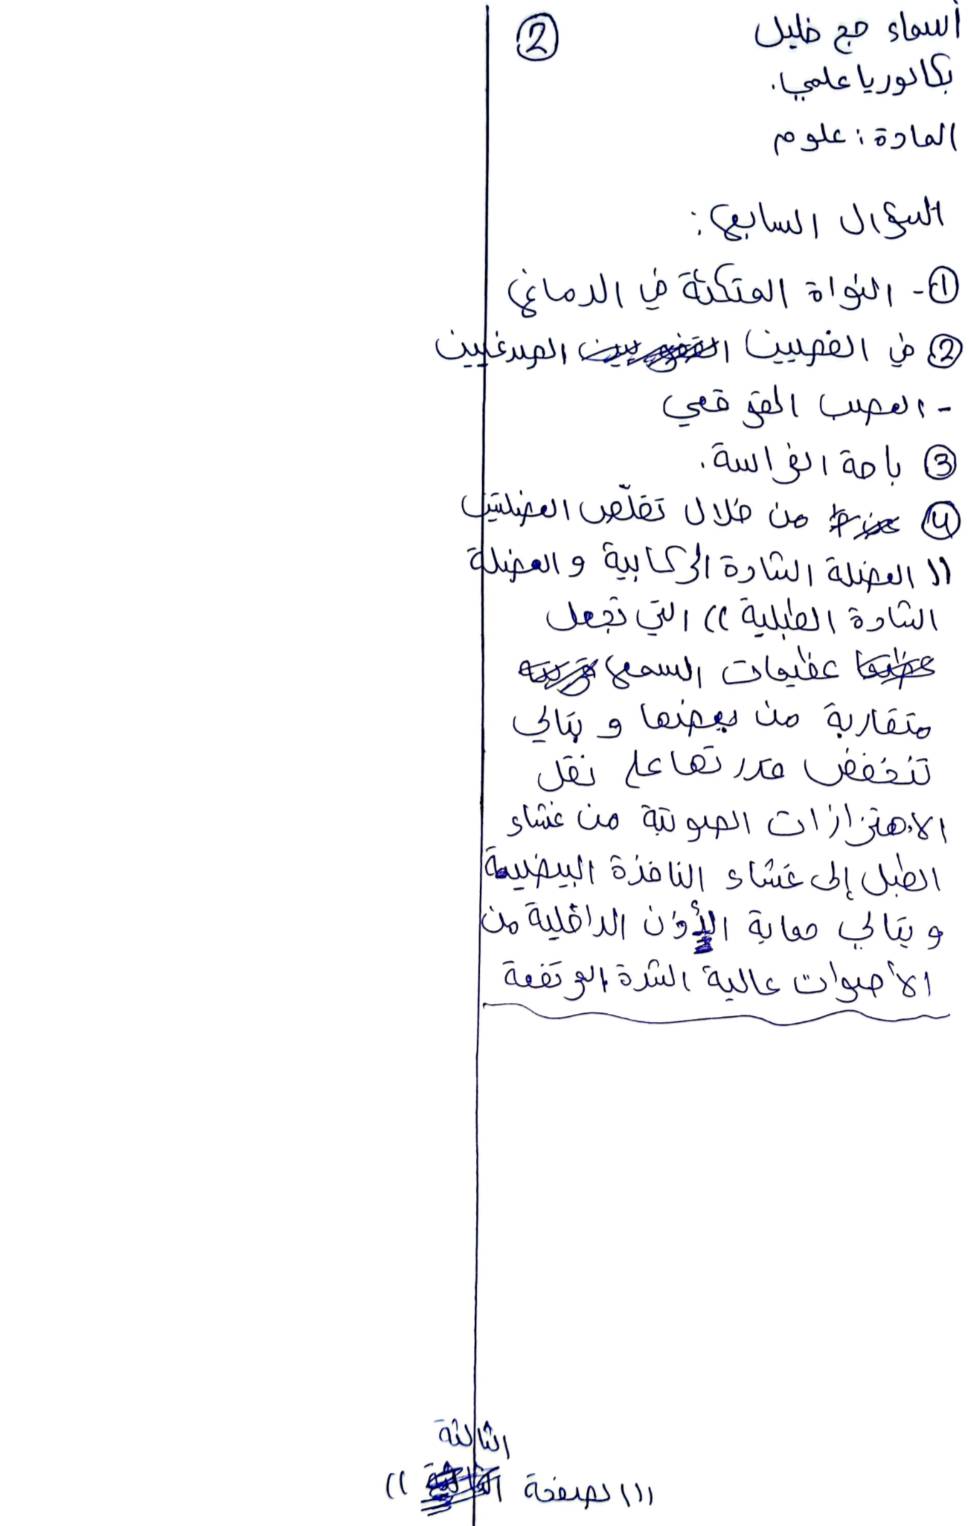 ②
أسماء حج خليل
بكالوريا علمي.
المادة: علوم
السؤال السابع:
①- النواة المتكئة في الدماغ
② في الفصيين الصدغيين
- العصب القوقعي
③ باحة الفراسة.
④ من خلال تقلّص العضلتين
(( العضلة الشادة الركابية والعضلة
الشادة الطبلية )) التي تجعل
عظيمات السمع
متقاربة من بعضها و بتالي
تنخفض قدرتها على نقل
الاهتزازات الصوتية من غشاء
الطبل إلى غشاء النافذة البيضية
و بتالي حماية الأذن الداخلية من
الأصوات عالية الشدة المرتفعة
الثالثة
(( الصفحة ))